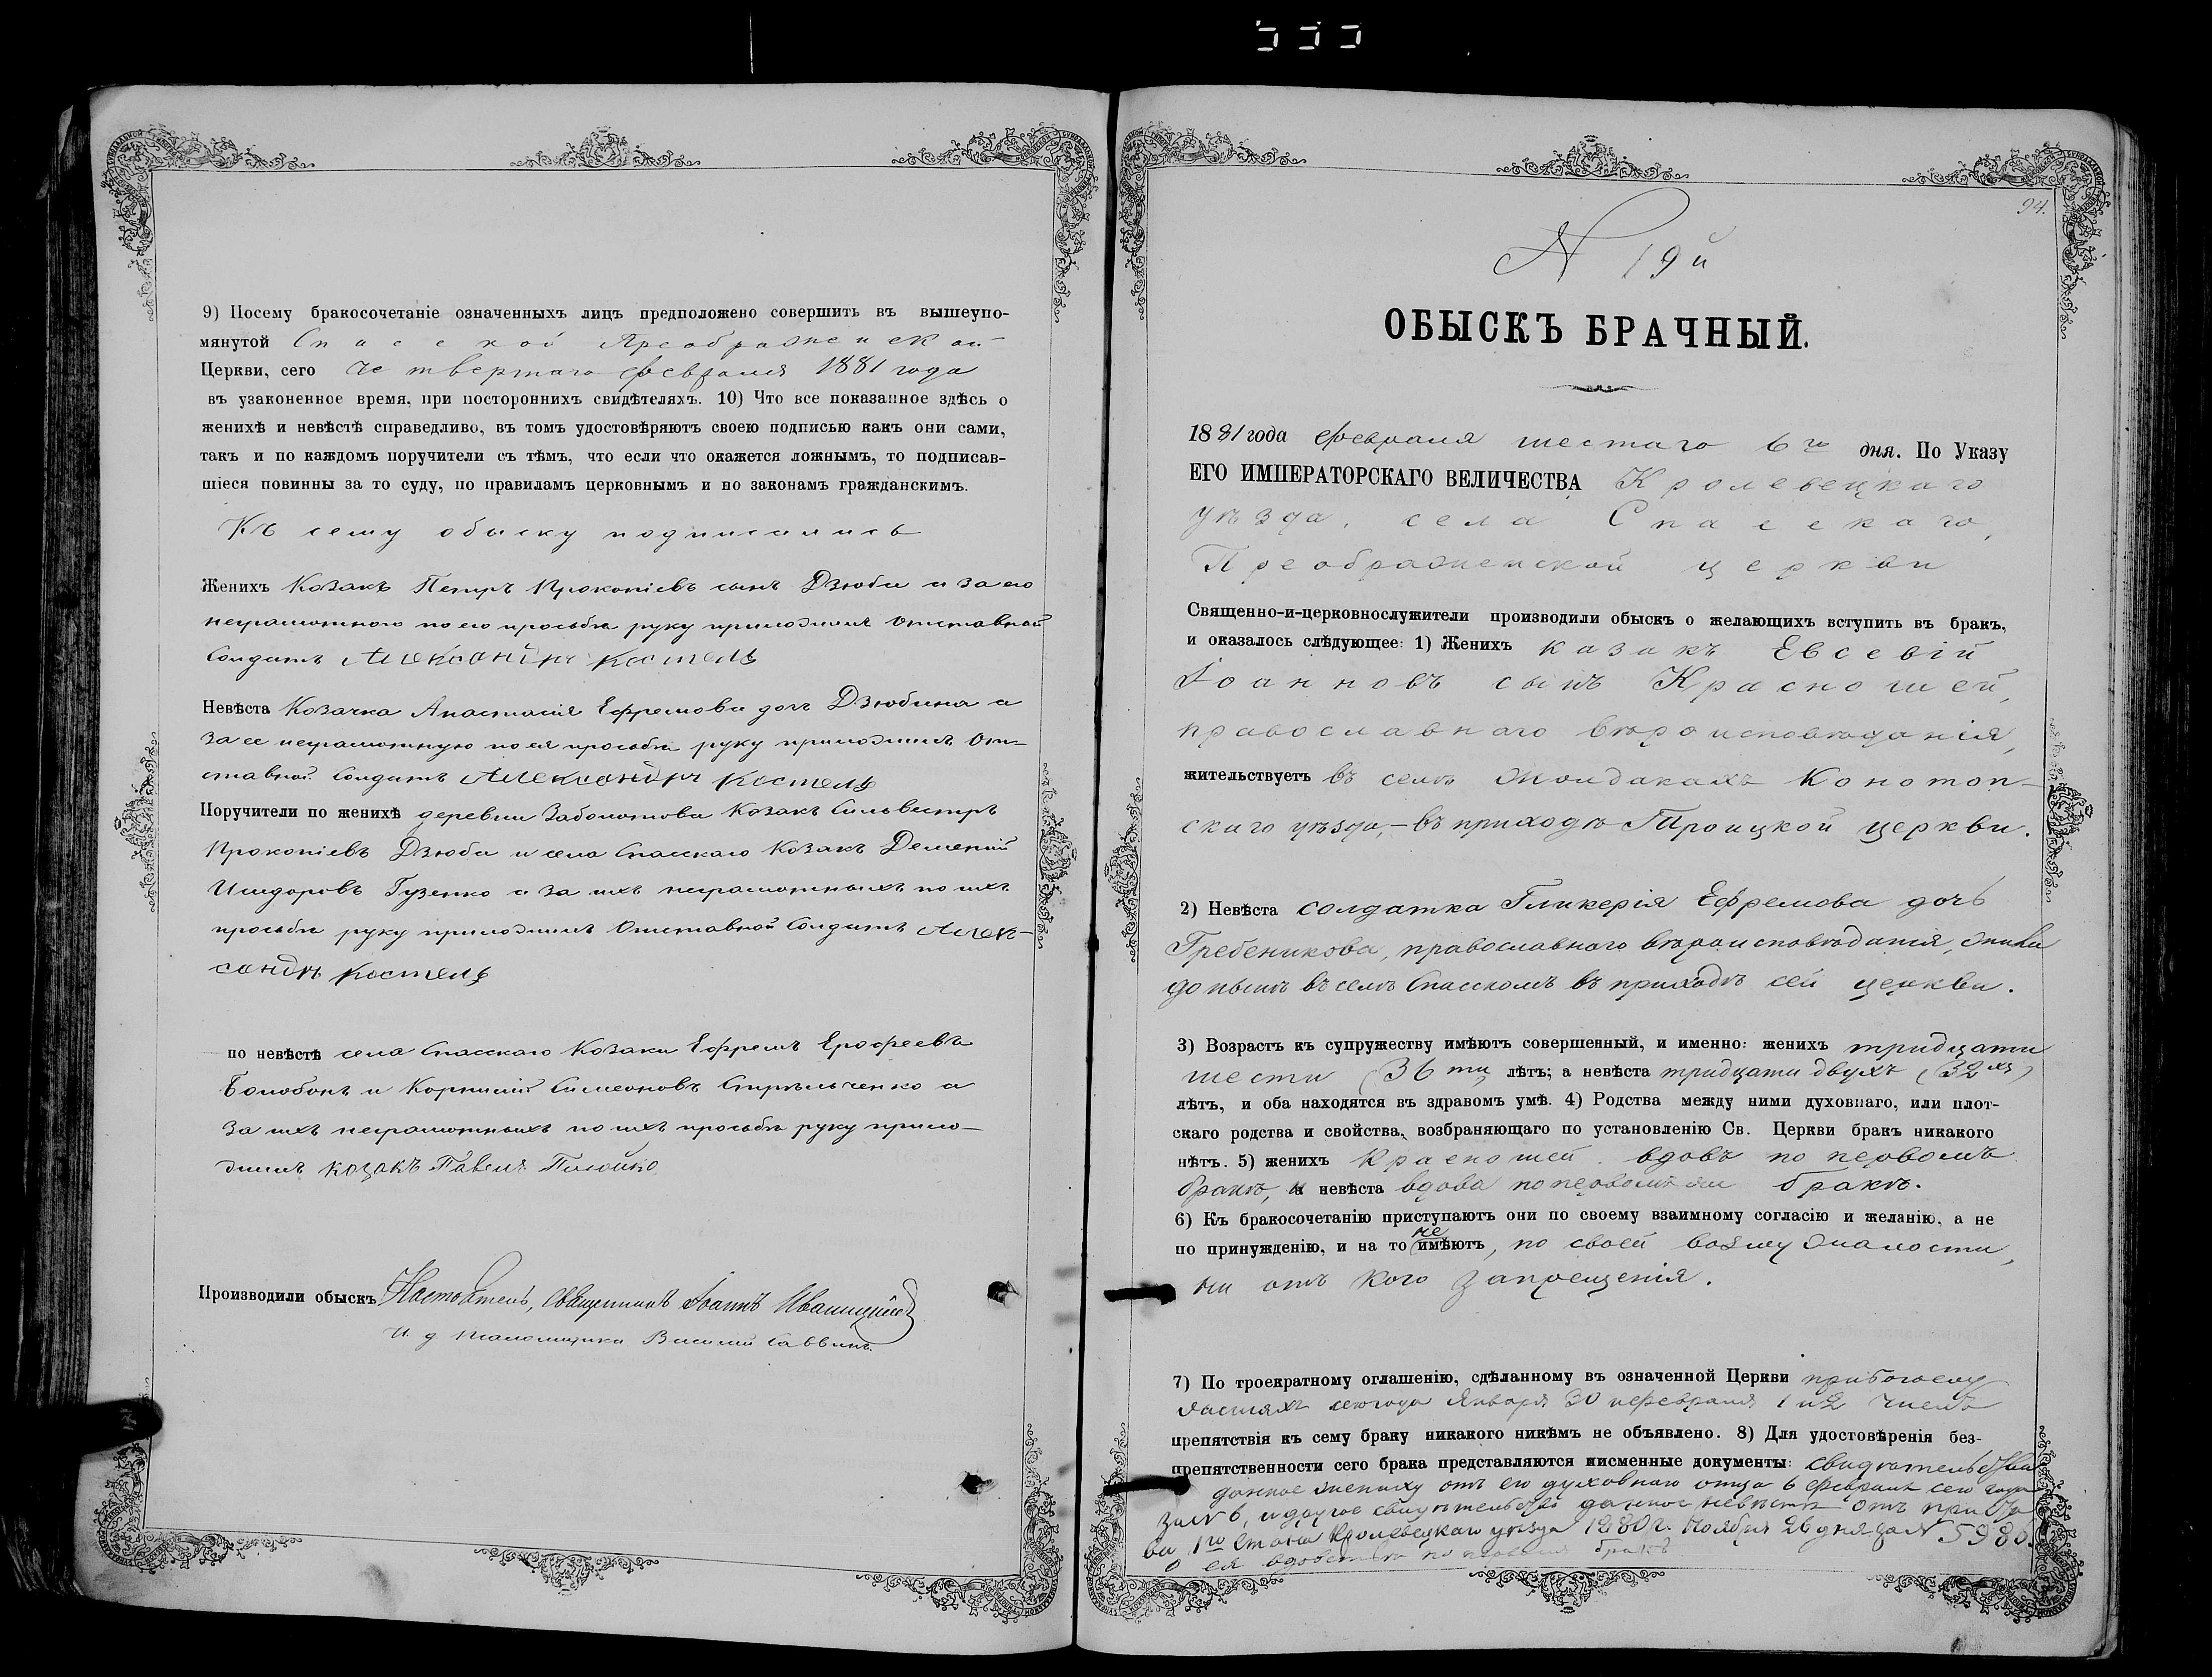 9) Посему бракосочетаніе означенныхъ лицъ предположено совершить въ вышеупо-
мянутой Спасской Преображенской
Церкви, сего четвертаго февраля 1881 года
въ узаконенное время, при постороннихъ свидѣтеляхъ. 10) Что все показанное здѣсь о
женихѣ и невѣстѣ справедливо, въ томъ удостовѣряютъ своею подписью какъ они сами,
такъ и по каждомъ поручители съ тѣмъ, что если что окажется ложнымъ, то подписав-
шіеся повинны за то суду, по правиламъ церковнымъ и по законамъ гражданскимъ.
Къ сему обыску подписались
Женихъ Козакъ Петръ Прокопіевъ сынъ Дзюба и за его
неграмотного по его просьбѣ руку приложилъ отставной
Солдатъ Александръ Костель
Невѣста Козачка Анастасія Ефремова дочь Дзюбина а
за ее неграмотную по ея просьбѣ руку приложилъ От-
ставной Солдатъ Александръ Костель
Поручители по женихѣ деревни Заболотова Козакъ Сильвестръ
Прокопіевъ Дзюба и села Спасскаго Козакъ Дементій
Исидоровъ Гузенко а за ихъ неграмотныхъ по ихъ
просьбѣ руку приложилъ Отставной Солдатъ Алек-
сандръ Костель
по невѣстѣ села Спасскаго Козаки Ефремъ Ерофеевъ
Болобонъ и Корнилій Симеоновъ Стрѣльченко а
за ихъ неграмотныхъ по ихъ просьбѣ руку прило-
жилъ козакъ Павелъ
Производили обыскъ Настоятель, Священникъ Іоаннъ
И. д. псаломщика Василій Саввинъ.
94.
N 19й
ОБЫСКЪ БРАЧНЫЙ.
1881 года февраля шестаго 6го дня. По Указу
ЕГО ИМПЕРАТОРСКАГО ВЕЛИЧЕСТВА Кролевецкаго
уѣзда, села Спасскаго,
Преображенской церкви
Священно-и-церковнослужители производили обыскъ о желающихъ вступить въ бракъ,
и оказалось слѣдующее: 1) Женихъ казакъ Евсевій
Іоанновъ сынъ Красношей,
православнаго вѣроисповѣданія,
жительствуетъ въ селѣ Жолдакахъ Конотоп-
скаго уѣзда,—въ приходѣ Троицкой церкви.
2) Невѣста солдатка Гликерія Ефремова дочь
Гребеникова, православнаго вѣроисповѣданія, жила
до нынѣ въ селѣ Спасскомъ въ приходѣ сей церкви.
3) Возрастъ къ супружеству имѣютъ совершенный, и именно: женихъ тридцати
шести (36ти) лѣтъ; а невѣста тридцати двухъ (32хъ)
лѣтъ, и оба находятся въ здравомъ умѣ. 4) Родства между ними духовнаго, или плот-
скаго родства и свойства, возбраняющаго по установленію Св. Церкви бракъ никакого
нѣтъ. 5) женихъ Красношей вдовъ по первомъ
бракѣ, а невѣста вдова по первомъ бракѣ.
6) Къ бракосочетанію приступаютъ они по своему взаимному согласію и желанію, а не
по принужденію, и на то не имѣютъ, по своей возмужалости,
ни отъ кого запрещенія.
7) По троекратному оглашенію, сдѣланному въ означенной Церкви при богослу
женіяхъ сего года Января 30 и февраля 1 и 2 числъ
препятствія къ сему браку никакого никѣмъ не объявлено. 8) Для удостовѣренія без-
препятственности сего брака представляются писменные документы: свидѣтельство
данное жениху отъ его духовнаго отца 6 февраля сего года
за N 6, и другое свидѣтельство данное невѣстѣ отъ приста
ва 1го Стана Кролевецкаго уѣзда 1880 г. Ноября 26 дня за N 5980.
о ея вдовствѣ по первомъ бракѣ